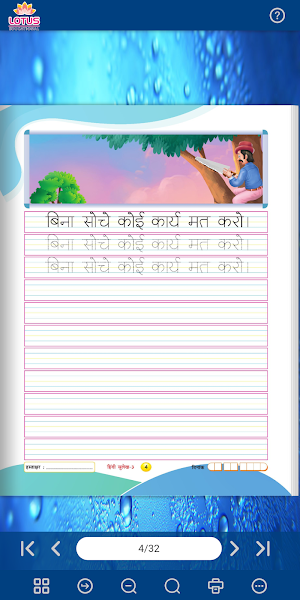 LOTUS
EDUCATIONAL
बिना सोचे कोई कार्य मत करो।
बिना सोचे कोई कार्य मत करो।
बिना सोचे कोई कार्य मत करो।
हस्ताक्षर : हिंदी सुलेख-3 4 दिनांक
4/32